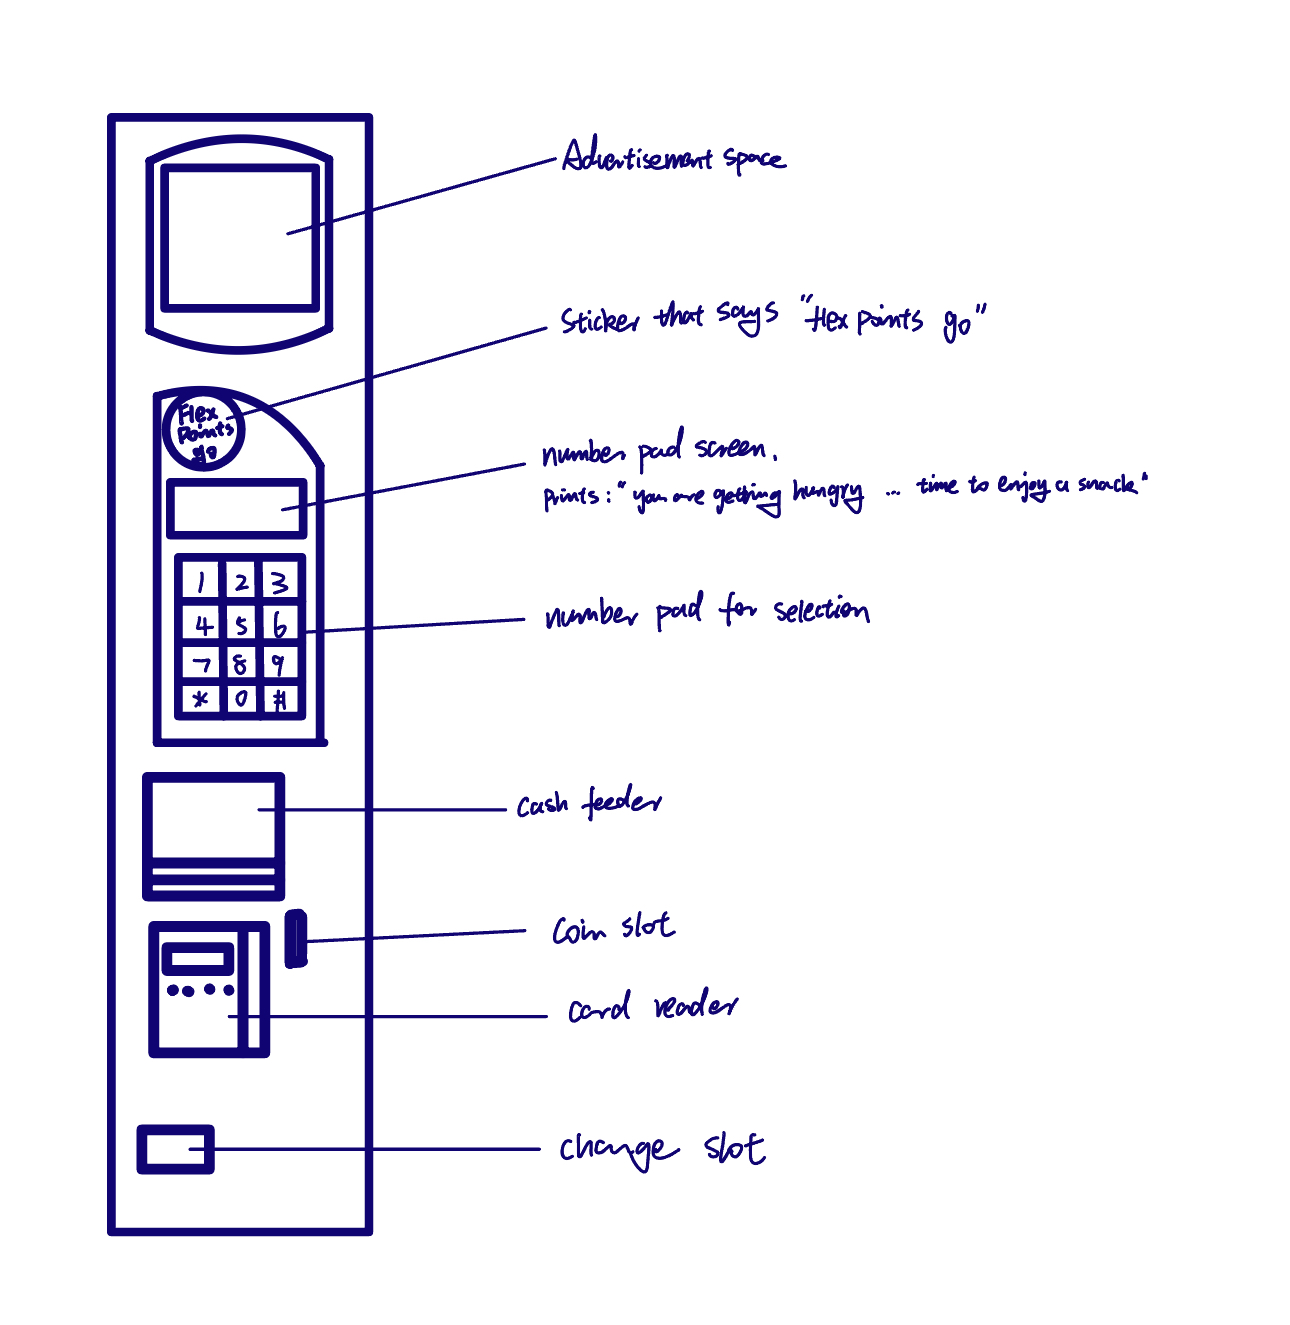 Advertisement space
Sticker that says "flex points go"
Flex
Points
go
number pad screen.
prints: "you are getting hungry ... time to enjoy a snack"
1 2 3
4 5 6
7 8 9
* 0 #
number pad for selection
cash feeder
Coin slot
card reader
change slot